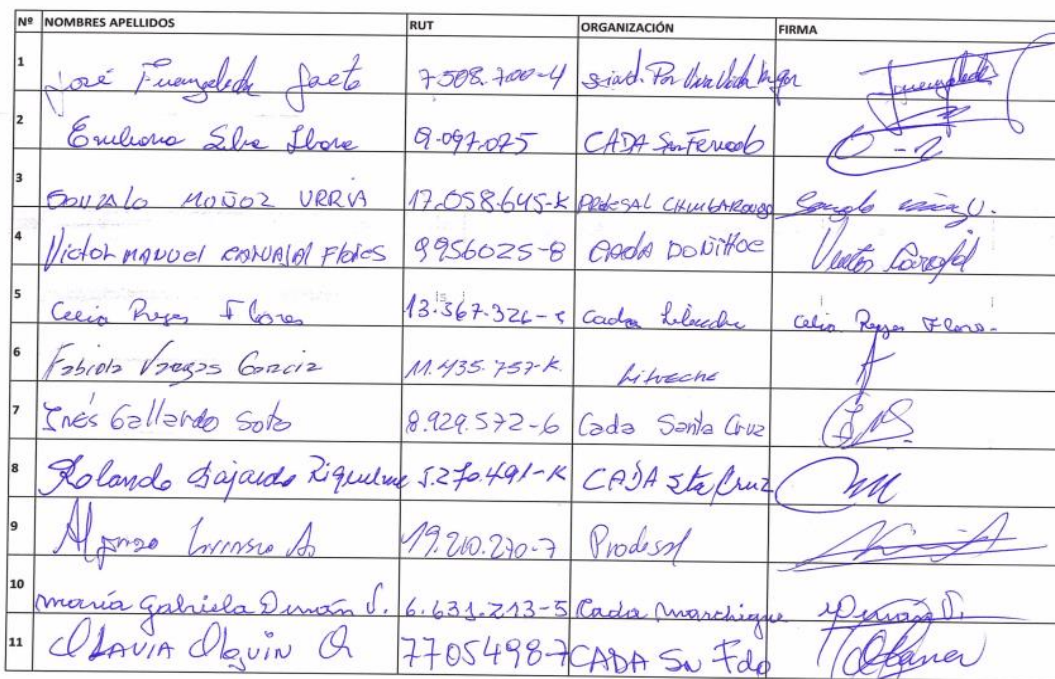 Nº NOMBRES APELLIDOS RUT ORGANIZACIÓN FIRMA
1 José Fuenzalida 7508.700-4 Por Una Vida Mejor Fuenzalida
2 Silva 9.097.075 CADA Sn Fernando
3 GONZALO MUÑOZ URRIA 17.058.645-K PRODESAL CHIMBARONGO Gonzalo Muñoz U.
4 Victor MANUEL CARVAJAL Flores 9956025-8 CADA DOÑIHUE Victor Carvajal
5 Celia Reyes Flores 13.567.326- Cada Litueche Celia Reyes Flores
6 Fabiola Vargas García 11.435.757-K. Litueche
7 Inés Gallardo Soto 8.929.572-6 Cada Santa Cruz
8 Rolando Gajardo Riquelme 5.270.491-K CADA Sta Cruz
9 Alfonso 19.210.270-7 Prodesal
10 maría Gabriela Durán V. 6.631.213-5 Cada marchigue Durán V.
11 OLAVIA Olguin O 77054987 CADA Sn Fdo